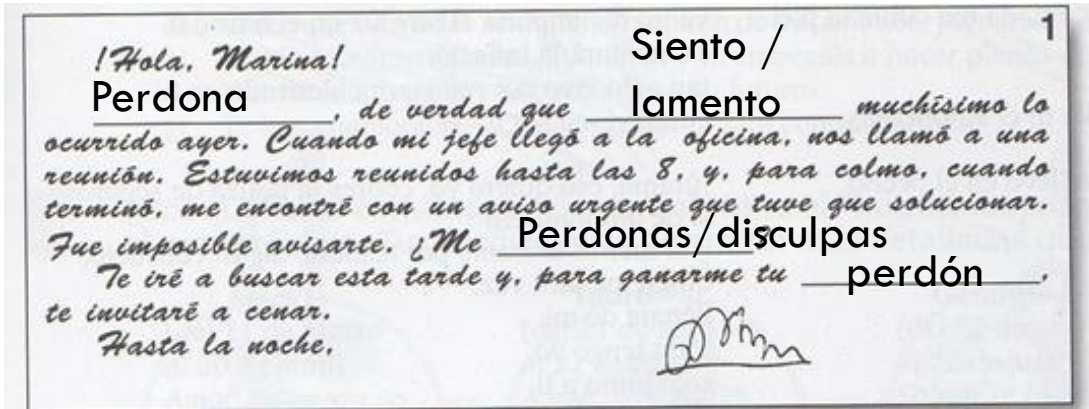 1
¡Hola, Marina!
Siento /
Perdona, de verdad que lamento muchísimo lo
ocurrido ayer. Cuando mi jefe llegó a la oficina, nos llamó a una
reunión. Estuvimos reunidos hasta las 8, y, para colmo, cuando
terminó, me encontré con un aviso urgente que tuve que solucionar.
Fue imposible avisarte. ¿Me Perdonas/disculpas?
Te iré a buscar esta tarde y, para ganarme tu perdón.
te invitaré a cenar.
Hasta la noche,